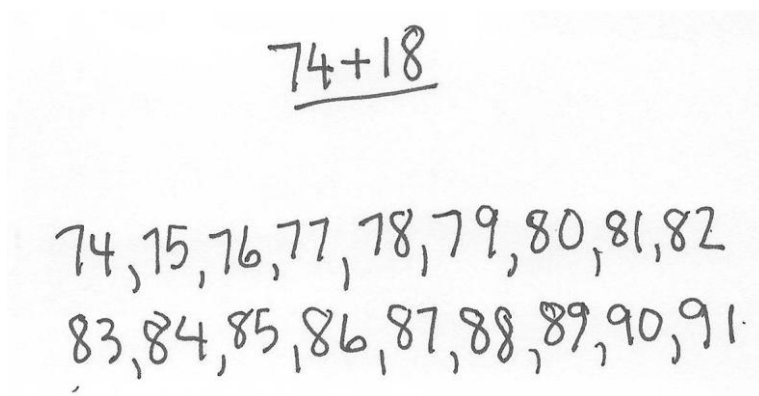 74+18
74,75,76,77,78,79,80,81,82
83,84,85,86,87,88,89,90,91.